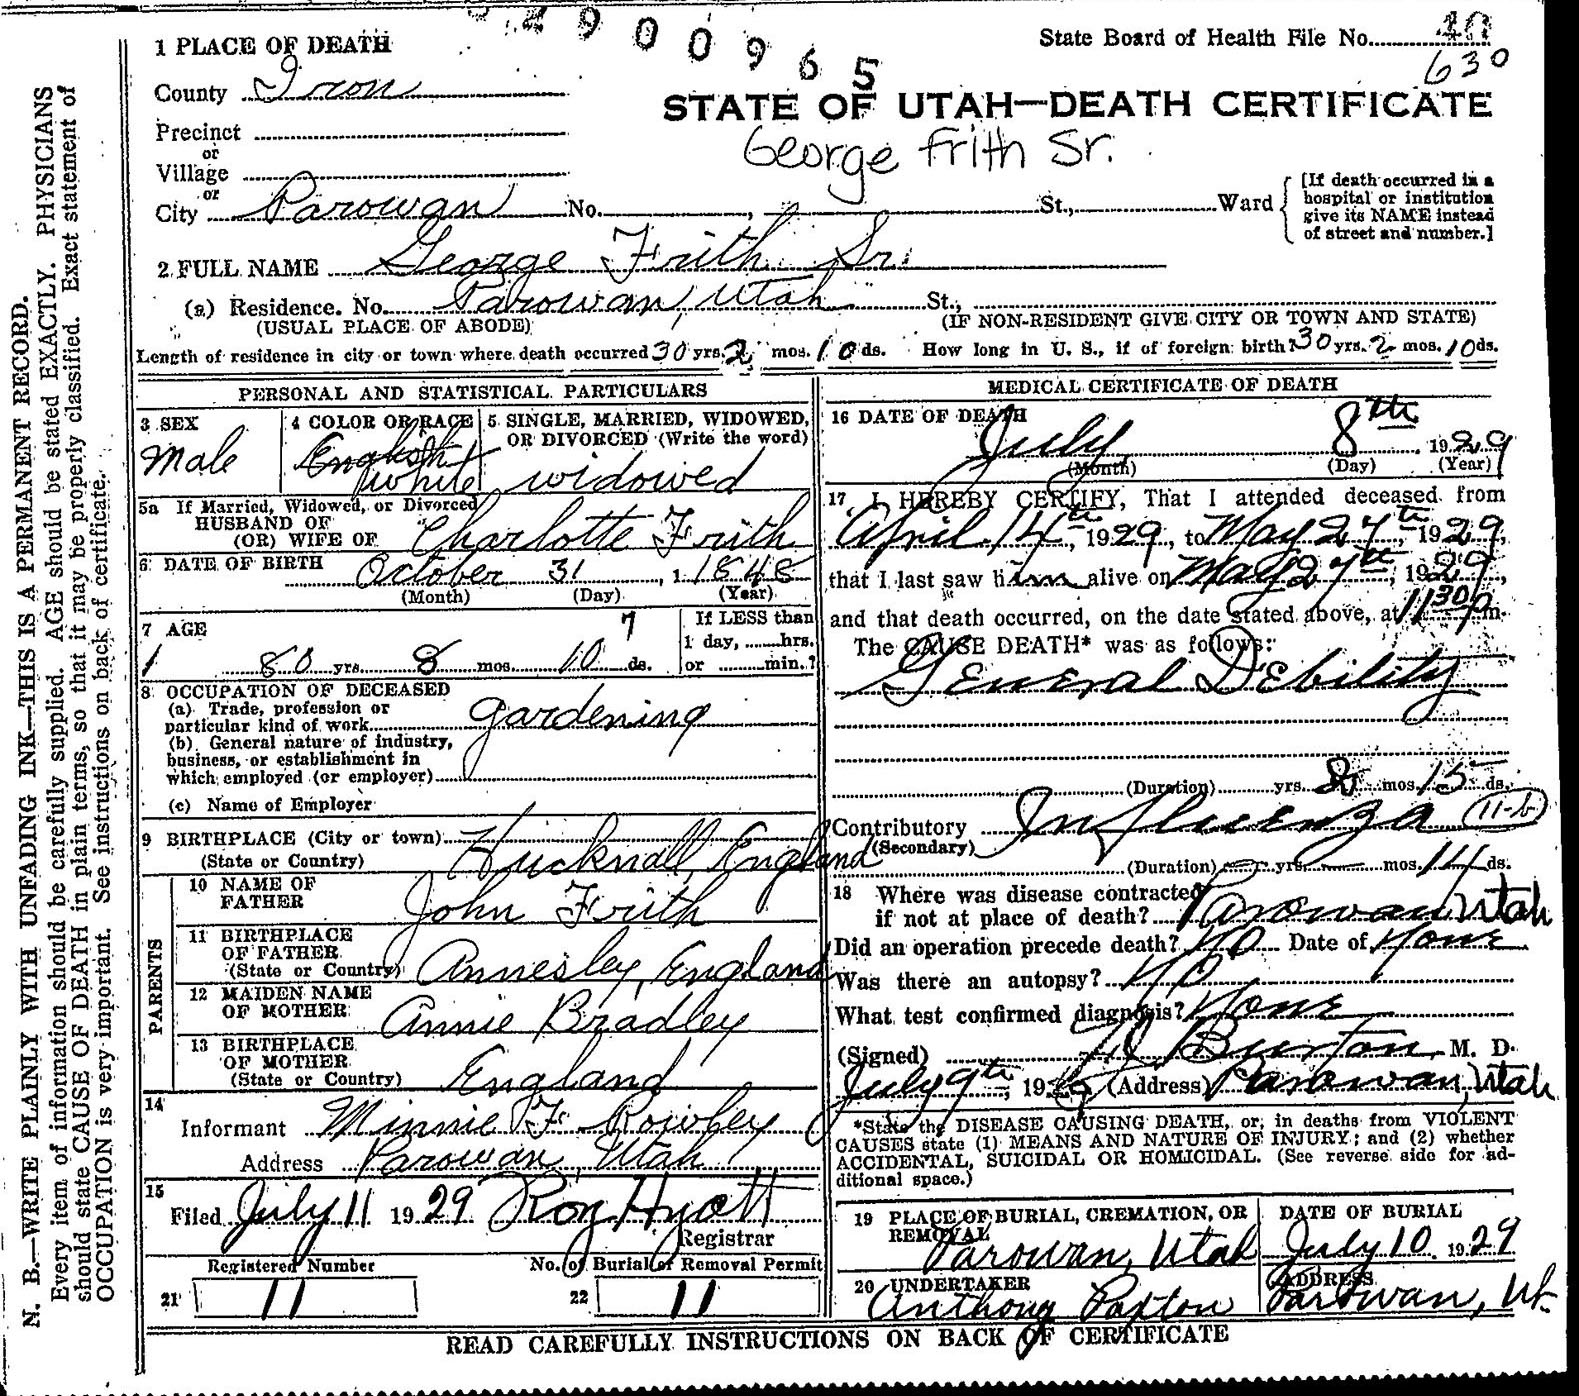 4900965
State Board of Health File No. 40
630
1 PLACE OF DEATH
County Iron
STATE OF UTAH—DEATH CERTIFICATE
Precinct
George Frith Sr.
or
Village
or
City Parowan No. , St., Ward
[If death occurred in a
hospital or institution
give its NAME instead
of street and number.]
2 FULL NAME George Frith Sr.
(a) Residence. No. Parowan, Utah St.,
(USUAL PLACE OF ABODE) (IF NON-RESIDENT GIVE CITY OR TOWN AND STATE)
Length of residence in city or town where death occurred 30 yrs. 2 mos. 10 ds. How long in U. S., if of foreign birth? 30 yrs. 2 mos. 10 ds.
PERSONAL AND STATISTICAL PARTICULARS
3 SEX
Male
4 COLOR OR RACE
English
White
5 SINGLE, MARRIED, WIDOWED,
OR DIVORCED (Write the word)
widowed
5a If Married, Widowed, or Divorced
HUSBAND OF
(OR) WIFE OF Charlotte Frith
6 DATE OF BIRTH October 31, 1848
(Month) (Day) (Year)
7 AGE 7
80 yrs. 8 mos. 10 ds.
If LESS than
1 day, ......hrs.
or ........min.?
8 OCCUPATION OF DECEASED
(a) Trade, profession or
particular kind of work gardening
(b) General nature of industry,
business, or establishment in
which employed (or employer)
(c) Name of Employer
9 BIRTHPLACE (City or town)
(State or Country) Hucknall, England
PARENTS
10 NAME OF
FATHER John Frith
11 BIRTHPLACE
OF FATHER
(State or Country) Annesley, England
12 MAIDEN NAME
OF MOTHER Annie Bradley
13 BIRTHPLACE
OF MOTHER
(State or Country) England
14
Informant Minnie F Rowley
Address Parowan, Utah
15
Filed July 11 1929 Roy Hyatt
Registrar
Registered Number No. of Burial or Removal Permit
21 11 22 11
MEDICAL CERTIFICATE OF DEATH
16 DATE OF DEATH
July 8th 1929
(Month) (Day) (Year)
17 I HEREBY CERTIFY, That I attended deceased from
April 14th, 1929, to May 27th, 1929,
that I last saw him alive on May 27th, 1929,
and that death occurred, on the date stated above, at 11 30 p m.
The CAUSE DEATH* was as follows:
General Debility
(Duration) yrs. 8 mos. 15 ds.
Contributory Influenza 11-b
(Secondary)
(Duration) yrs. mos. 14 ds.
18 Where was disease contracted
if not at place of death? Parowan, Utah
Did an operation precede death? No Date of None
Was there an autopsy? No
What test confirmed diagnosis? None
(Signed) Burton M. D.
July 9th, 1929 (Address) Parowan, Utah
*State the DISEASE CAUSING DEATH, or, in deaths from VIOLENT
CAUSES state (1) MEANS AND NATURE OF INJURY; and (2) whether
ACCIDENTAL, SUICIDAL OR HOMICIDAL. (See reverse side for ad-
ditional space.)
19 PLACE OF BURIAL, CREMATION, OR
REMOVAL
Parowan, Utah
DATE OF BURIAL
July 10, 1929
20 UNDERTAKER
Anthony Paxton
ADDRESS
Parowan, Ut.
READ CAREFULLY INSTRUCTIONS ON BACK OF CERTIFICATE
N. B.—WRITE PLAINLY WITH UNFADING INK—THIS IS A PERMANENT RECORD.
Every item of information should be carefully supplied. AGE should be stated EXACTLY. PHYSICIANS
should state CAUSE OF DEATH in plain terms, so that it may be properly classified. Exact statement of
OCCUPATION is very important. See instructions on back of certificate.